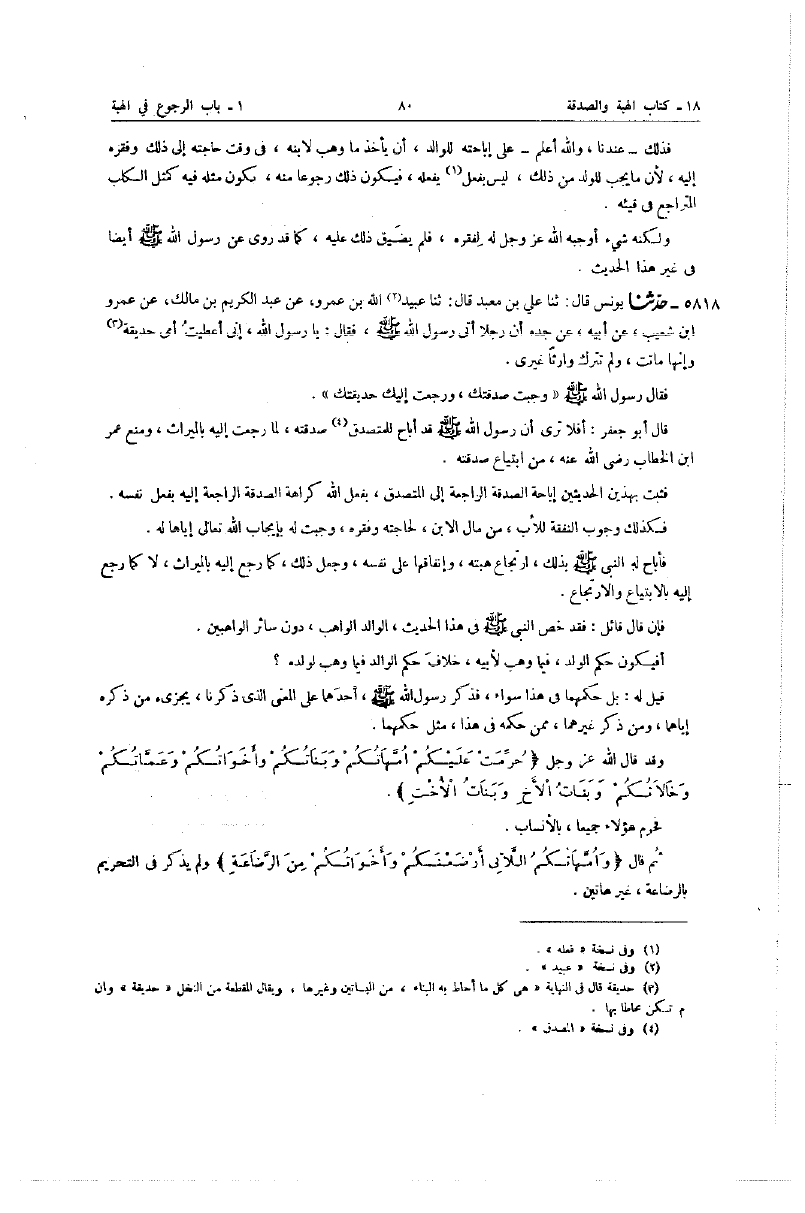 ١٨ - كتاب الهبة والصدقة ٨٠ ١ - باب الرجوع في الهبة
فذلك – عندنا ، والله أعلم – على إباحته للوالد ، أن يأخذ ما وهب لابنه ، فى وقت حاجته إلى ذلك وفقره
إليه ، لأن مايجب للولد من ذلك ، ليس بفعل(١) يفعله ، فيكون ذلك رجوعا منه ، يكون مثله فيه كمثل الكلب
المتراجع فى قيئه .
ولكنه شيء أوجبه الله عز وجل له لفقره ، فلم يضيق ذلك عليه ، كما قد روى عن رسول الله ﷺ أيضا
فى غير هذا الحديث .
٥٨١٨ - حدّثنا يونس قال: ثنا علي بن معبد قال: ثنا عبيد(٢) الله بن عمرو، عن عبد الكريم بن مالك، عن عمرو
ابن شعيب ، عن أبيه ، عن جده أن رجلا أتى رسول الله ﷺ ، فقال : يا رسول الله ، إنى أعطيتُ أمى حديقة(٣)
وإنها ماتت ، ولم تترك وارثًا غيرى .
فقال رسول الله ﷺ « وجبت صدقتك ، ورجعت إليك حديقتك » .
قال أبو جعفر : أفلا ترى أن رسول الله ﷺ قد أباح للمتصدق(٤) صدقته ، لما رجعت إليه بالميراث ، ومنع عمر
ابن الخطاب رضى الله عنه ، من ابتياع صدقته .
فثبت بهذين الحديثين إباحة الصدقة الراجعة إلى المتصدق ، بفعل الله كراهة الصدقة الراجعة إليه بفعل نفسه .
فكذلك وجوب النفقة للأب ، من مال الابن ، لحاجته وفقره ، وجبت له بإيجاب الله تعالى إياها له .
فأباح له النبى ﷺ بذلك ، ارتجاع هبته ، وإنفاقها على نفسه ، وجعل ذلك ، كما رجع إليه بالميراث ، لا كما رجع
إليه بالابتياع والارتجاع .
فإن قال قائل : فقد خص النبى ﷺ فى هذا الحديث ، الوالد الواهب ، دون سائر الواهبين .
أفيكون حكم الولد ، فيما وهب لأبيه ، خلافَ حكم الوالد فيما وهب لولده ؟
قيل له : بل حكمهما فى هذا سواء ، فذكر رسول الله ﷺ ، أحدهما على المعنى الذى ذكرنا ، يجزىء من ذكره
إياهما ، ومن ذكر غيرهما ، ممن حكمه فى هذا ، مثل حكمهما .
وقد قال الله عز وجل ﴿ حُرِّمَتْ عَلَيْكُمْ أُمَّهَاتُكُمْ وَبَنَاتُكُمْ وَأَخَوَاتُكُمْ وَعَمَّاتُكُمْ
وَخَالَاتُكُمْ وَبَنَاتُ الْأَخِ وَبَنَاتُ الْأُخْتِ ﴾ .
فحرم هؤلاء جميعا ، بالأنساب .
ثم قال ﴿ وَأُمَّهَاتُكُمُ اللَّاتِى أَرْضَعْنَكُمْ وَأَخَوَاتُكُمْ مِنَ الرَّضَاعَةِ ﴾ ولم يذكر فى التحريم
بالرضاعة ، غير هاتين .
(١) وفى نسخة « فعله » .
(٢) وفى نسخة « عبيد » .
(٣) حديقة قال فى النهاية « هى كل ما أحاط به البناء ، من البساتين وغيرها ، ويقال للقطعة من النخل « حديقة » وان
م تكن محاطا بها .
(٤) وفى نسخة « المصدق » .